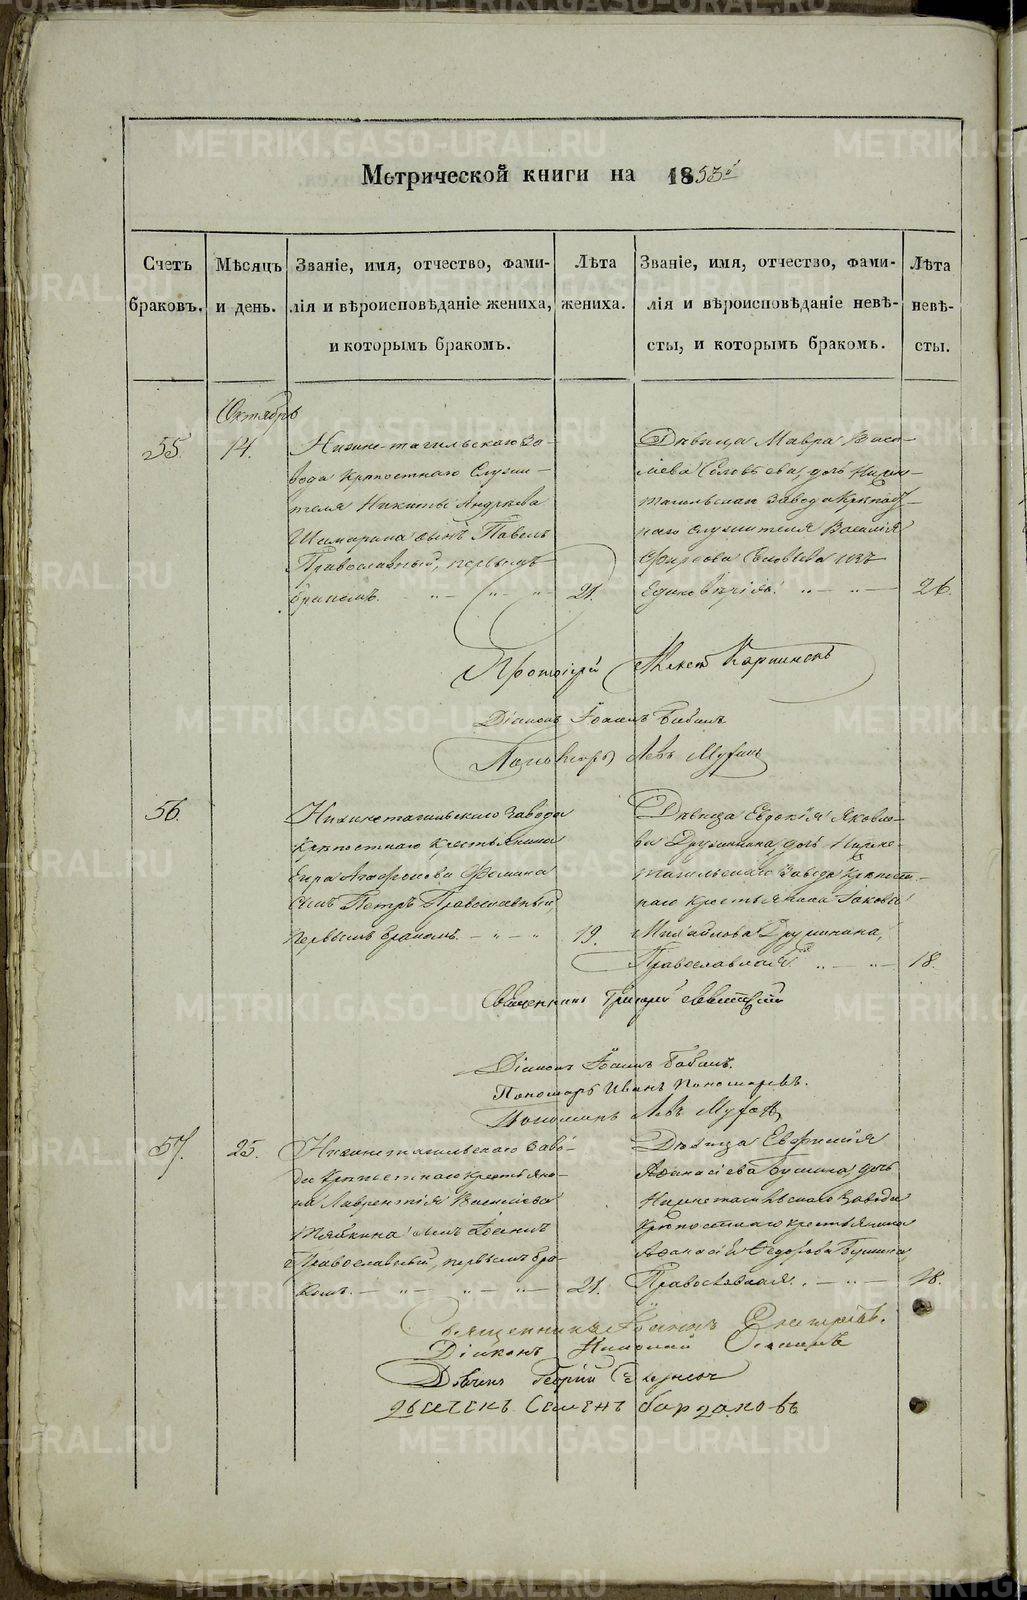 Метрической книги на 1853й
Счетъ браковъ.
Мѣсяцъ и день.
Званіе, имя, отчество, фами-
лія и вѣроисповѣданіе жениха,
и которымъ бракомъ.
Лѣта
жениха.
Званіе, имя, отчество, фами-
лія и вѣроисповѣданіе невѣ-
сты, и которымъ бракомъ.
Лѣта
невѣ-
сты.
Октябрь
55.
14.
Нижне-тагильскаго за-
вода крѣпостнаго служи-
теля Никиты Андреева
Шамарина сынъ Павелъ
Православный, первымъ
бракомъ.
21.
Дѣвица Мавра Васи-
ліева Соловьева, дочь Нижне-
тагильскаго завода крѣпост-
наго служителя Василія
Фирсова Соловьева изъ
Единовѣрія.
26.
Протоіерей Карпинскъ
Діаконъ Іоаннъ Бабинъ
Пономарь Левъ Мухинъ
56.
Нижнетагильскаго завода
крѣпостнаго крестьянина
Егора Агафонова Фомина
сынъ Петръ Православный,
первымъ бракомъ.
19.
Дѣвица Евдокія Яковле-
ва Дружинина дочь Нижне-
тагильскаго завода крѣпост-
наго крестьянина Іакова
Михайлова Дружинина,
Православная.
18.
Священникъ Григорій
Діаконъ Іоаннъ Бабинъ.
Пономарь Иванъ Пономаревъ.
Пономарь Левъ Мухинъ
57.
25.
Нижнетагильскаго заво-
да крѣпостнаго крестьяни-
на Лаврентія Васильева
сынъ
Православный, первымъ бра-
комъ.
21.
Дѣвица Евфимія
Афанасіева Бушина, дочь
Нижнетагильскаго завода
крѣпостнаго крестьянина
Афанасія Ѳедорова Бушина,
Православная.
18.
Священникъ Іоаннъ
Діаконъ Николай
Дьячекъ Георгій
дьячекъ Семенъ Бардаковъ
METRIKI.GASO-URAL.RU